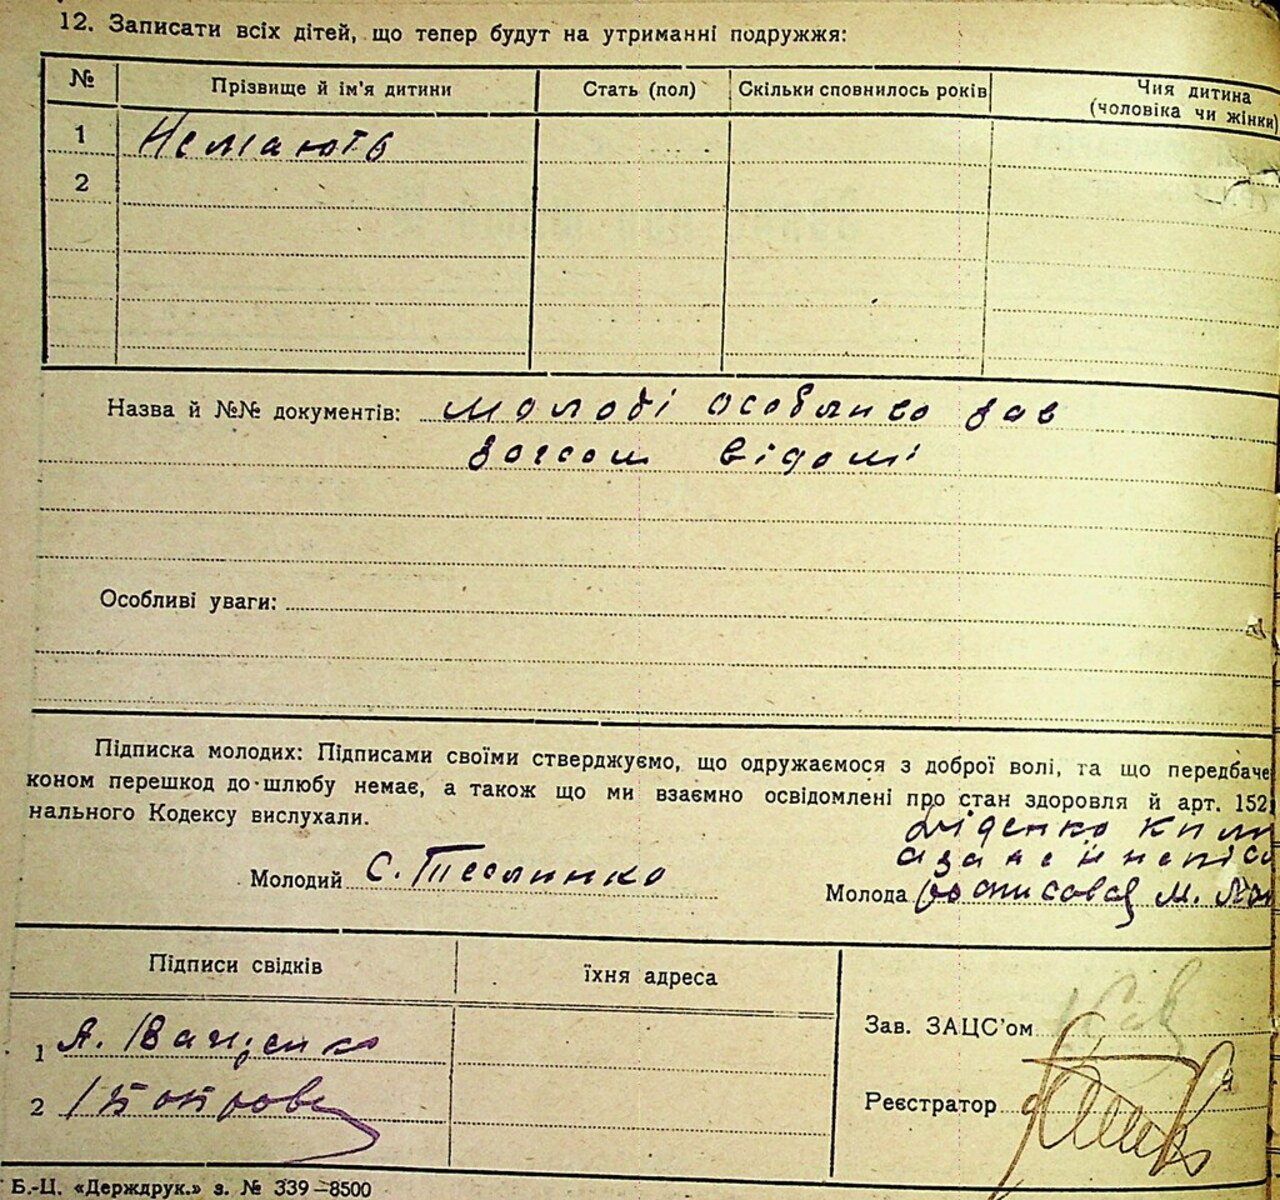 12. Записати всіх дітей, що тепер будут на утриманні подружжя:
№ Прізвище й ім'я дитини Стать (пол) Скільки сповнилось років Чия дитина (чоловіка чи жінки)
1 Немають
2
Назва й №№ документів: молоді особливо зав
загсом відомі
Особливі уваги:
Підписка молодих: Підписами своїми стверджуємо, що одружаємося з доброї волі, та що передбаче
коном перешкод до шлюбу немає, а також що ми взаємно освідомлені про стан здоровля й арт. 152
нального Кодексу вислухали.
Діденко
Молодий С. Теслинко Молода
Підписи свідків їхня адреса
Зав. ЗАЦС'ом
1 Я. Іващенко
Реєстратор
2
Б.-Ц. «Держдрук.» з. № 339—8500